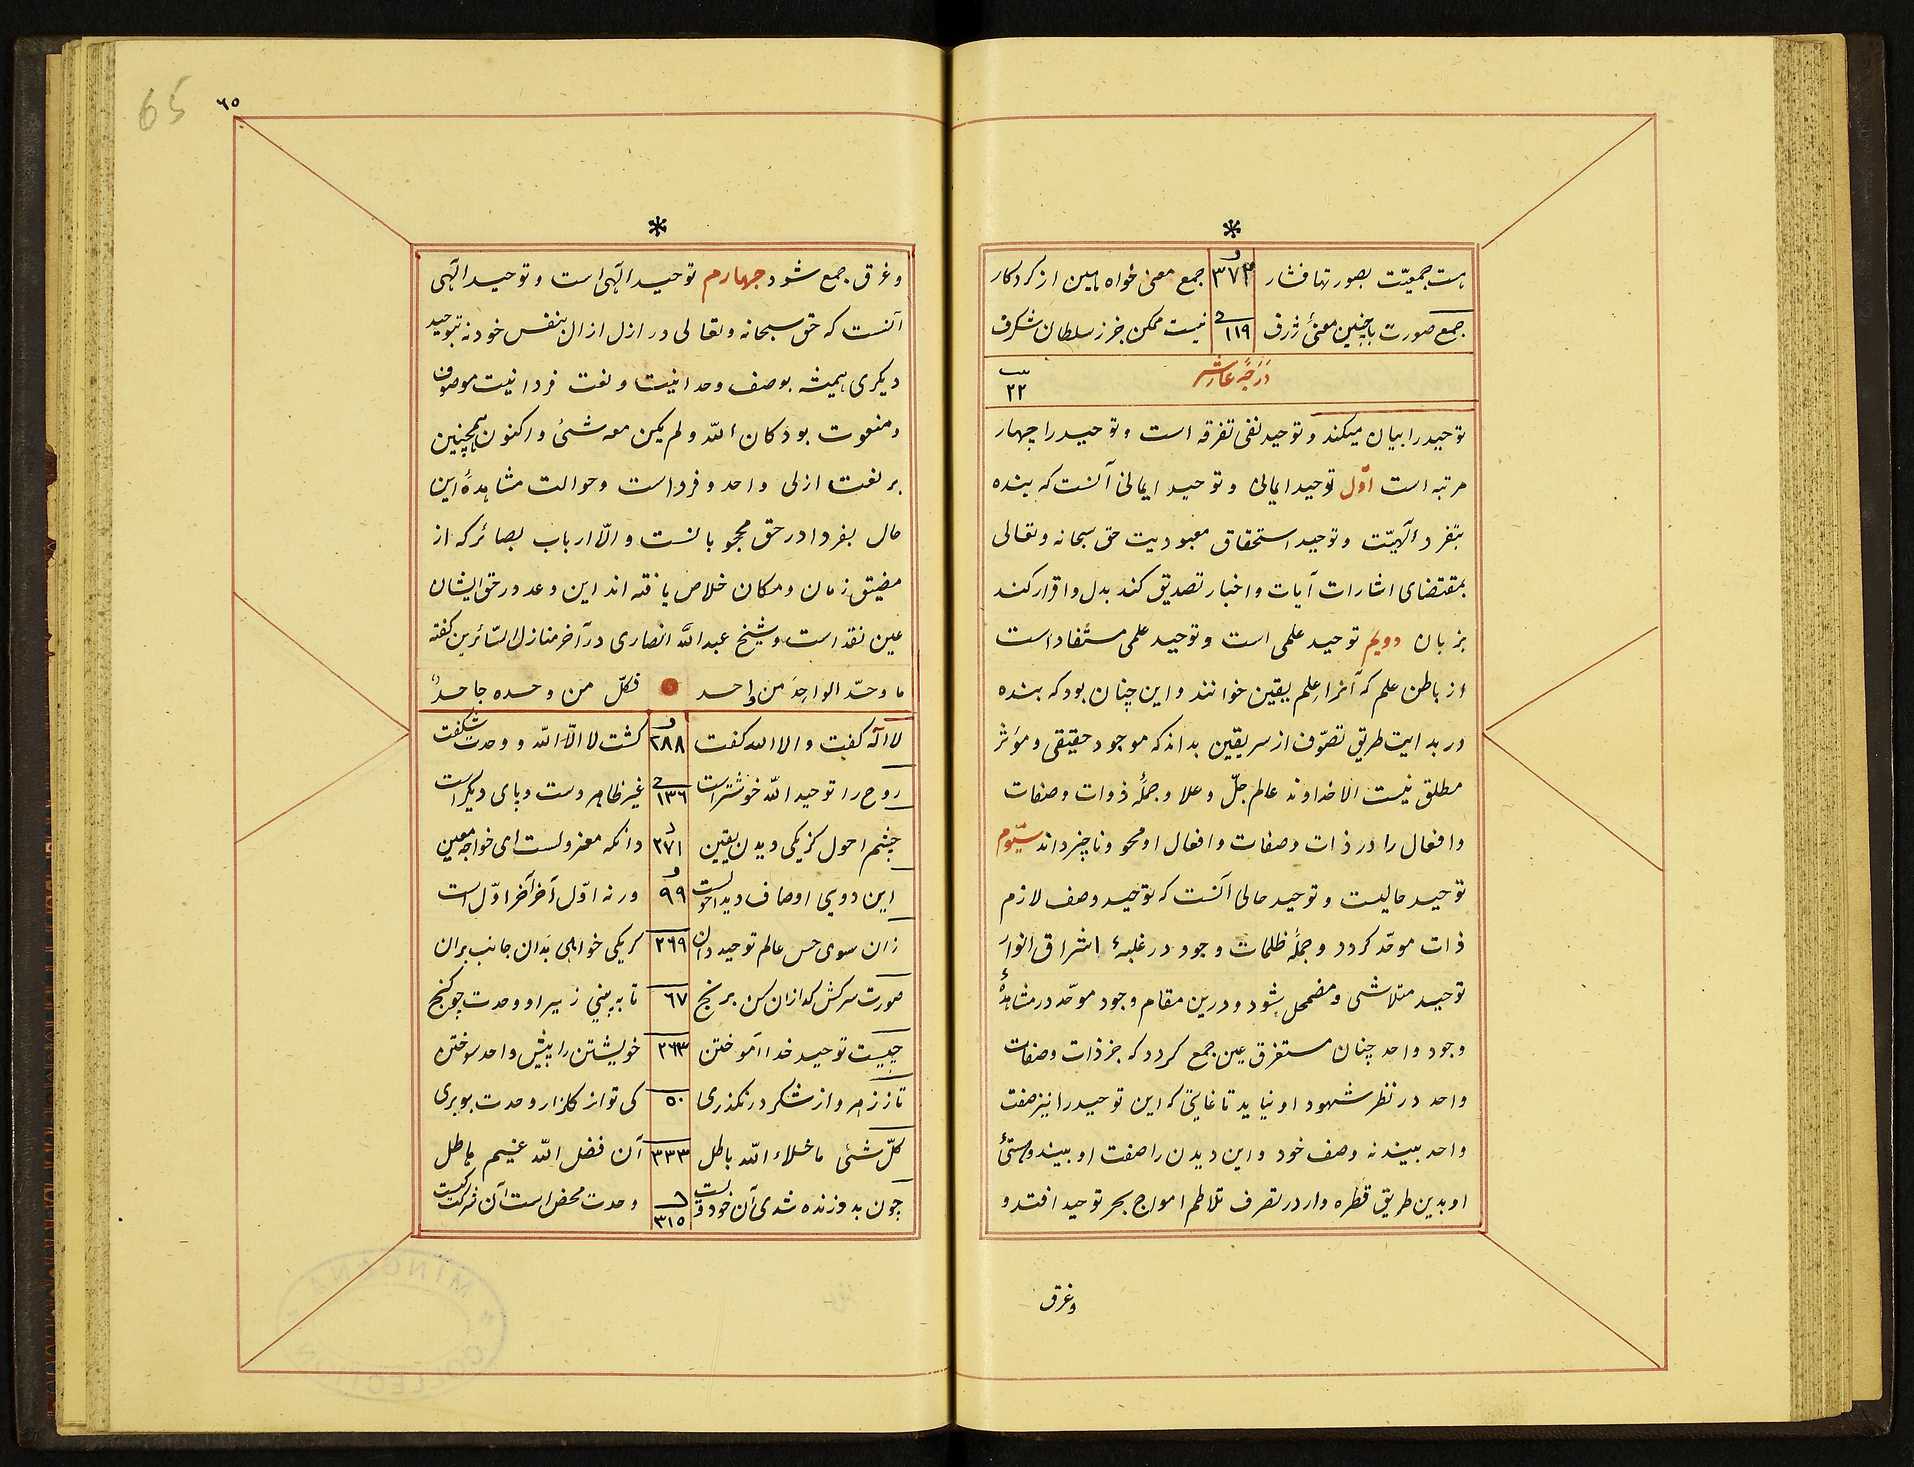 هست جمعیّت بصورتها فشار ٣٧٣ جمع معنی خواه هین از کردکار
جمع صورت با چنین معنیٔ ژرف ١١٩ نیست ممکن جز ز سلطان شکرف
درجهٔ عاشر ٢٢
توحید را بیان میکند و توحید نفی تفرقه است و توحید را چهار
مرتبه است اوّل توحید ایمانی و توحید ایمانی آنست که بنده
بتفرد الٓهیّت و توحید استحقاق معبودیت حق سبحانه و تعالی
بمقتضای اشارات آیات و اخبار تصدیق کند بدل و اقرار کند
بزبان دویم توحید علمی است و توحید علمی مستفاد است
از باطن علم که آنرا علم یقین خوانند و این چنان بود که بنده
در بدایت طریق تصوّف از سر یقین بداند که موجود حقیقی و مؤثر
مطلق نیست الا خداوند عالم جلّ و علا و جملهٔ ذوات و صفات
و افعال را در ذات و صفات و افعال او محو و ناچیز داند سیّوم
توحید حالیست و توحید حالی آنست که توحید وصف لازم
ذات موحّد کردد و جملهٔ ظلمات وجود در غلبهٔ اشراق انوار
توحید متلاشی و مضمحل شود و درین مقام وجود موحّد در مشاهدهٔ
وجود واحد چنان مستغرق عین جمع کردد که جز ذات و صفات
واحد در نظر شهود او نیاید تا غایتی که این توحید را نیز صفت
واحد بیند نه وصف خود و این دیدن را صفت او بیند و هستیٔ
او بدین طریق قطره وار در تصرف تلاطم امواج بحر توحید افتد و
وغرق
٦٥
65
و غرق جمع شود چهارم توحید الٓهی است و توحید الٓهی
آنست که حق سبحانه و تعالی در ازل ازال بنفس خود نه بتوحید
دیکری همیشه بوصف وحدانیت و نعت فردانیت موصوف
و منعوت بود کان اللّه و لم یکن معه شئی و اکنون همچنین
بر نعت ازلی واحد و فرد است و حوالت مشاهدهٔ این
حال بفردا در حق محجوبانست و الّا ارباب بصائر که از
مضیق زمان و مکان خلاص یافته اند این وعد در حق ایشان
عین نقد است و شیخ عبداللّه انصاری در آخر منازل السّائرین کفته
ما وحّد الواحِدَ من واحد فکلّ من وحده جاحدٌ
لا اله کفت و الا الله کفت ٢٨٨ کشت لا الّا اللّه و وحدت شکفت
روح را توحید اللّه خوشتر است ١٣٦ غیر ظاهر دست و پای دیکر است
چشم احول کز یکی دیدن یقین ٢٧١ دانکه معزولست ای خواجه معین
این دویی اوصاف دید احولست ٩٩ ورنه اوّل آخر آخر اوّل است
زان سوی حس عالم توحید دان ٢٦٩ کر یکی خواهی بدان جانب بران
صورت سرکش کدازان کن برنج ٦٧ تا به بینی زیر او وحدت چو کنج
چیست توحید خدا آموختن ٢٦٣ خویشتن را پیش واحد سوختن
تا ز زهر و از شکر در نکذری ٥٠ کی تو از کلزار وحدت بو بری
کلّ شئی ما خلاء اللّه باطل ٣٣٣ آن فضل اللّه غیم هاطل
چون بدو زنده شدی آن خود ویست ٣١٥ وحدت محض است آن شرکت کیست